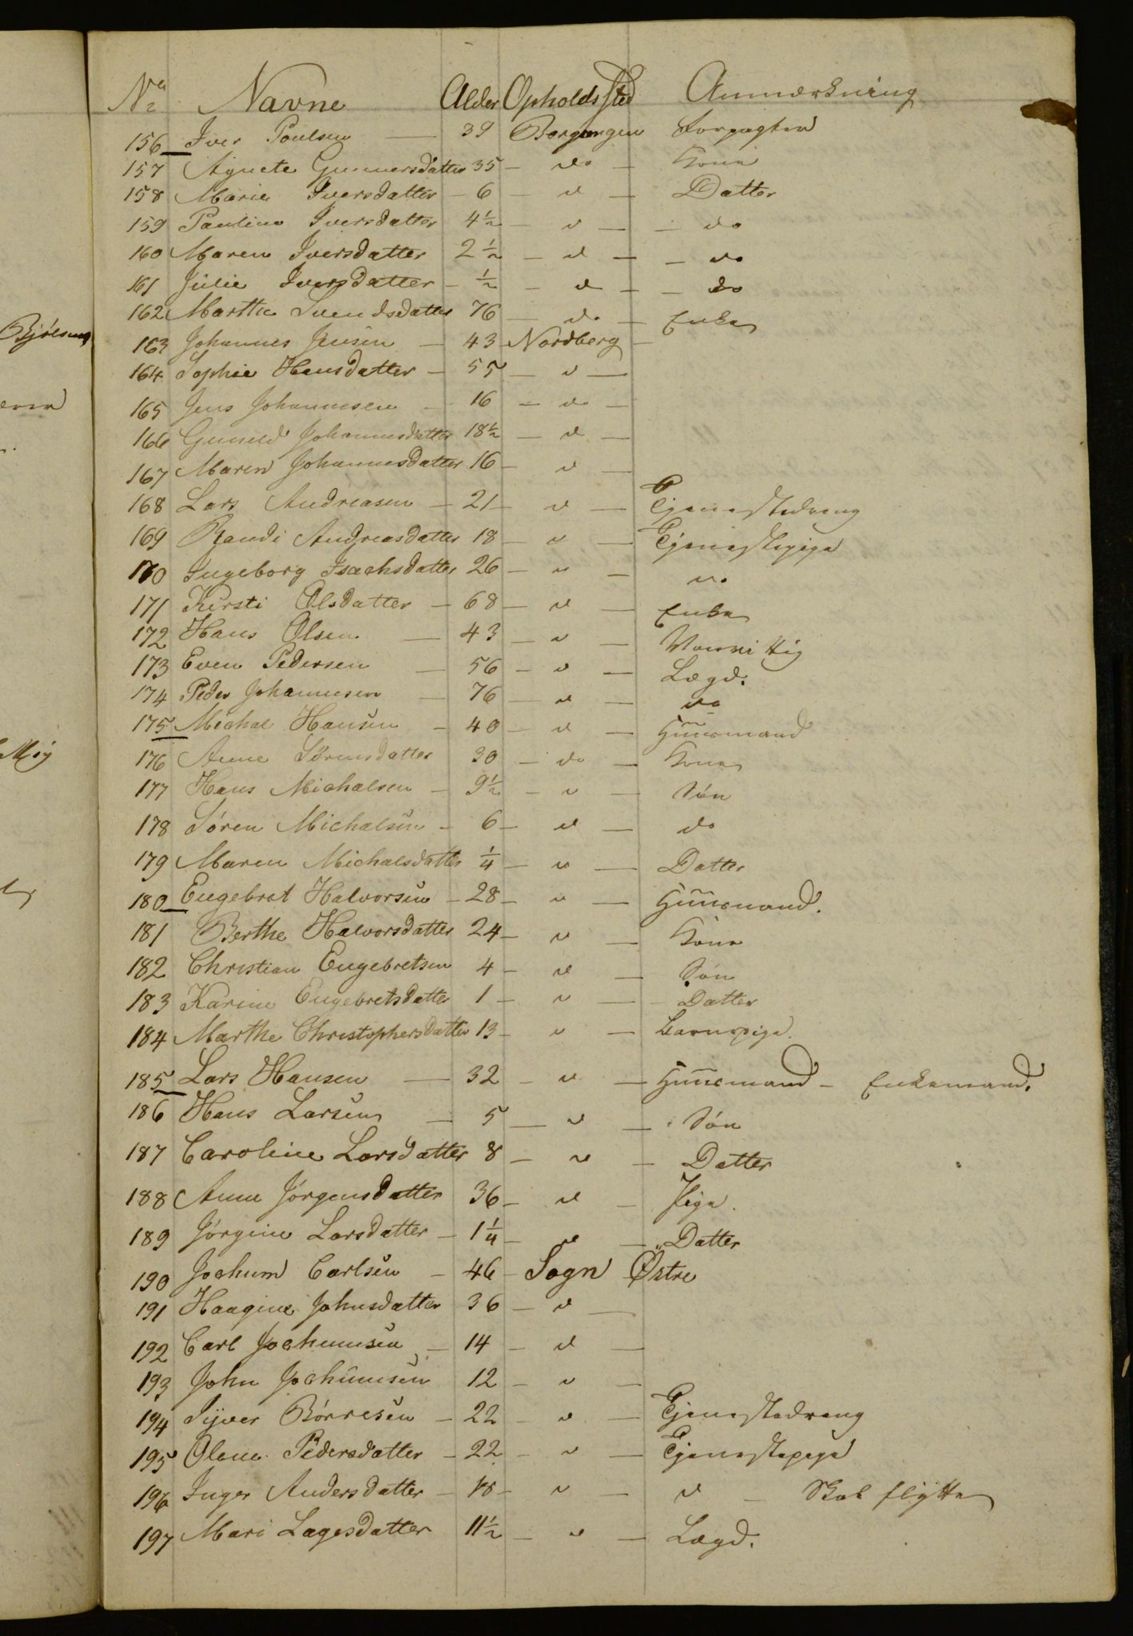 No Navne Alder Opholdssted Anmærkning
156 Iver Poulsen — 39 Borgangen Forpagter
157 Agnete Gunnersdatter 35 — do — Kone
158 Marie Iversdatter — 6 — d — Datter
159 Pauline Iversdatter 4½ — d — — do
160 Maren Iversdatter 2½ — d — — do
161 Julie Iversdatter — ½ — d — — do
162 Marthe Svendsdatter 76 — do — Enke
163 Johannes Jensen — 43 Nordberg —
164 Sophie Hansdatter — 55 — d —
165 Jens Johannesen — 16 — do —
166 Gunild Johannesdatter 18½ — d —
167 Maren Johannesdatter 16 — d —
168 Lars Andreasen — 21 — d — Tjenestedreng
169 Randi Andreasdatter 18 — d — Tjenestepige
170 Ingeborg Isachsdatter 26 — d — do
171 Kirsti Olsdatter — 68 — d — Enke
172 Hans Olsen — 43 — d — Vanvittig
173 Even Pedersen — 56 — d — Lægd.
174 Peder Johannesen — 76 — d — do
175 Michal Hansen — 40 — d — Huusmand
176 Anne Sørensdatter 30 — do — Kone
177 Hans Michalsen — 9½ — d — Søn
178 Søren Michalsen — 6 — d — do
179 Maren Michalsdatter ¼ — d — Datter
180 Engebret Halvorsen — 28 — d — Huusmand.
181 Berthe Halvorsdatter 24 — d — Kone
182 Christian Engebretsen 4 — d — Søn
183 Karine Engebretsdatter 1 — d — Datter
184 Marthe Christophersdatter 13 — d — Barnepige.
185 Lars Hansen — 32 — d — Huusmand — Enkemand.
186 Hans Larsen — 5 — d — Søn
187 Caroline Larsdatter 8 — d — Datter
188 Anne Jørgensdatter 36 — d — Pige.
189 Jørgine Larsdatter — 1¼ — d — Datter
190 Jochum Carlsen — 46 — Sogn Østre
191 Haagine Johnsdatter 36 — d —
192 Carl Jochumsen — 14 — d —
193 John Jochumsen 12 — d —
194 Syver Børresen — 22 — d — Tjenestedreng
195 Olene Pedersdatter — 22 — d — Tjenestepige
196 Inger Andersdatter — 18 — d — d — Skal flytte
197 Mari Lagesdatter 11½ — d — Lægd.